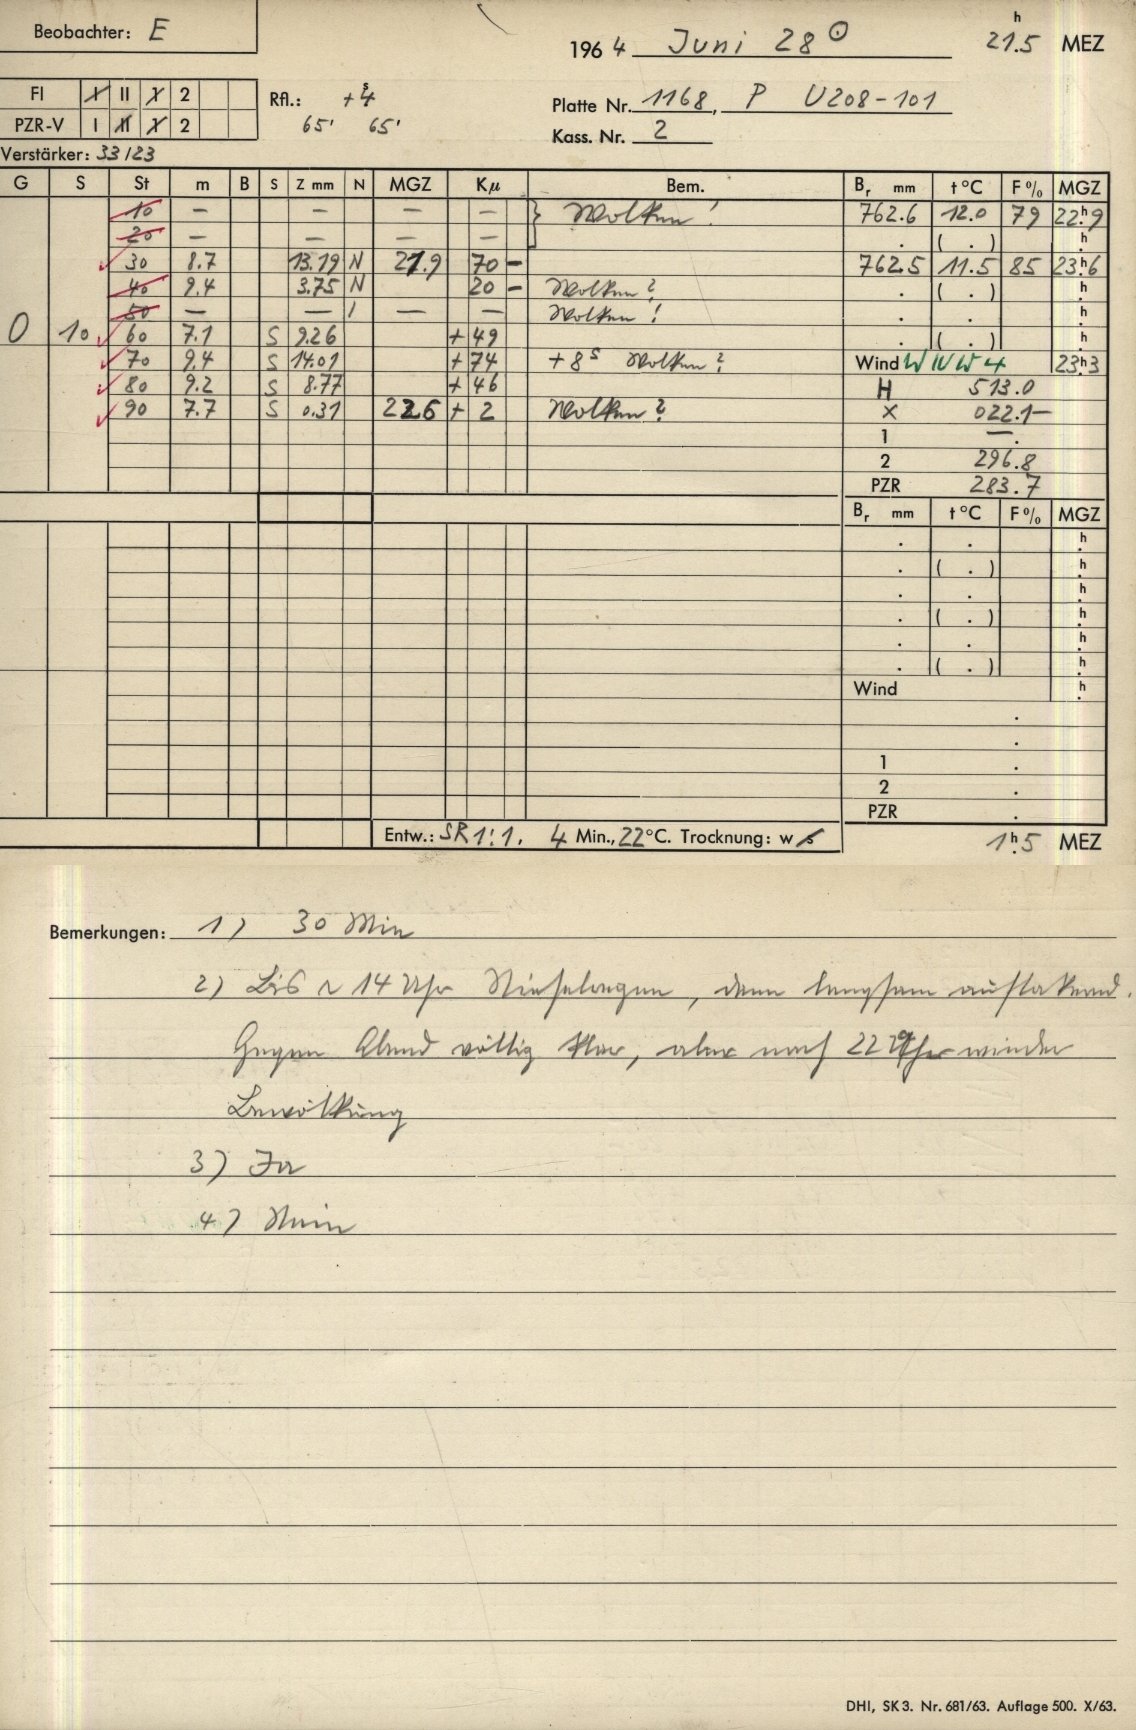 Beobachter: E
1964 Juni 28 ⊙ 21ʰ.5 MEZ
FI I II 1 2 Rfl.: +4ˢ
Platte Nr. 1168, P U208-101
PZR-V I II 1 2 65' 65'
Kass. Nr. 2
Verstärker: 33/23
G S St m B S Z mm N MGZ Kμ Bem. Bᵣ mm t °C F % MGZ
10 — — — — } Wolken! 762.6 12.0 79 22ʰ.9
20 — — — — . ( . ) ʰ.
30 8.7 13.19 N 21.9 70 - 762.5 11.5 85 23ʰ.6
40 9.4 3.75 N 20 - Wolken? . ( . ) ʰ.
50 — — — — Wolken! . . ʰ.
0 10 60 7.1 S 9.26 + 49 . ( . ) ʰ.
70 9.4 S 14.01 + 74 +8ˢ Wolken? Wind WNW 4 23ʰ.3
80 9.2 S 8.77 + 46 H 513.0
90 7.7 S 0.31 22.6 + 2 Wolken? X 022.1—
1 — .
2 296.8
PZR 283.7
Bᵣ mm t °C F % MGZ
. . ʰ.
. ( . ) ʰ.
. . ʰ.
. ( . ) ʰ.
. . ʰ.
. ( . ) ʰ.
Wind ʰ.
.
.
1 .
2 .
PZR .
Entw.: SR 1:1, 4 Min., 22 °C. Trocknung: w
1ʰ.5 MEZ
Bemerkungen: 1) 30 Min
2) Bis ~ 14 Uhr Nieselregen, dann langsam auflockernd.
Gegen Abend völlig klar, aber nach 22 Uhr wieder
Bewölkung
3) Ja
4) Nein
DHI, SK 3. Nr. 681/63. Auflage 500. X/63.